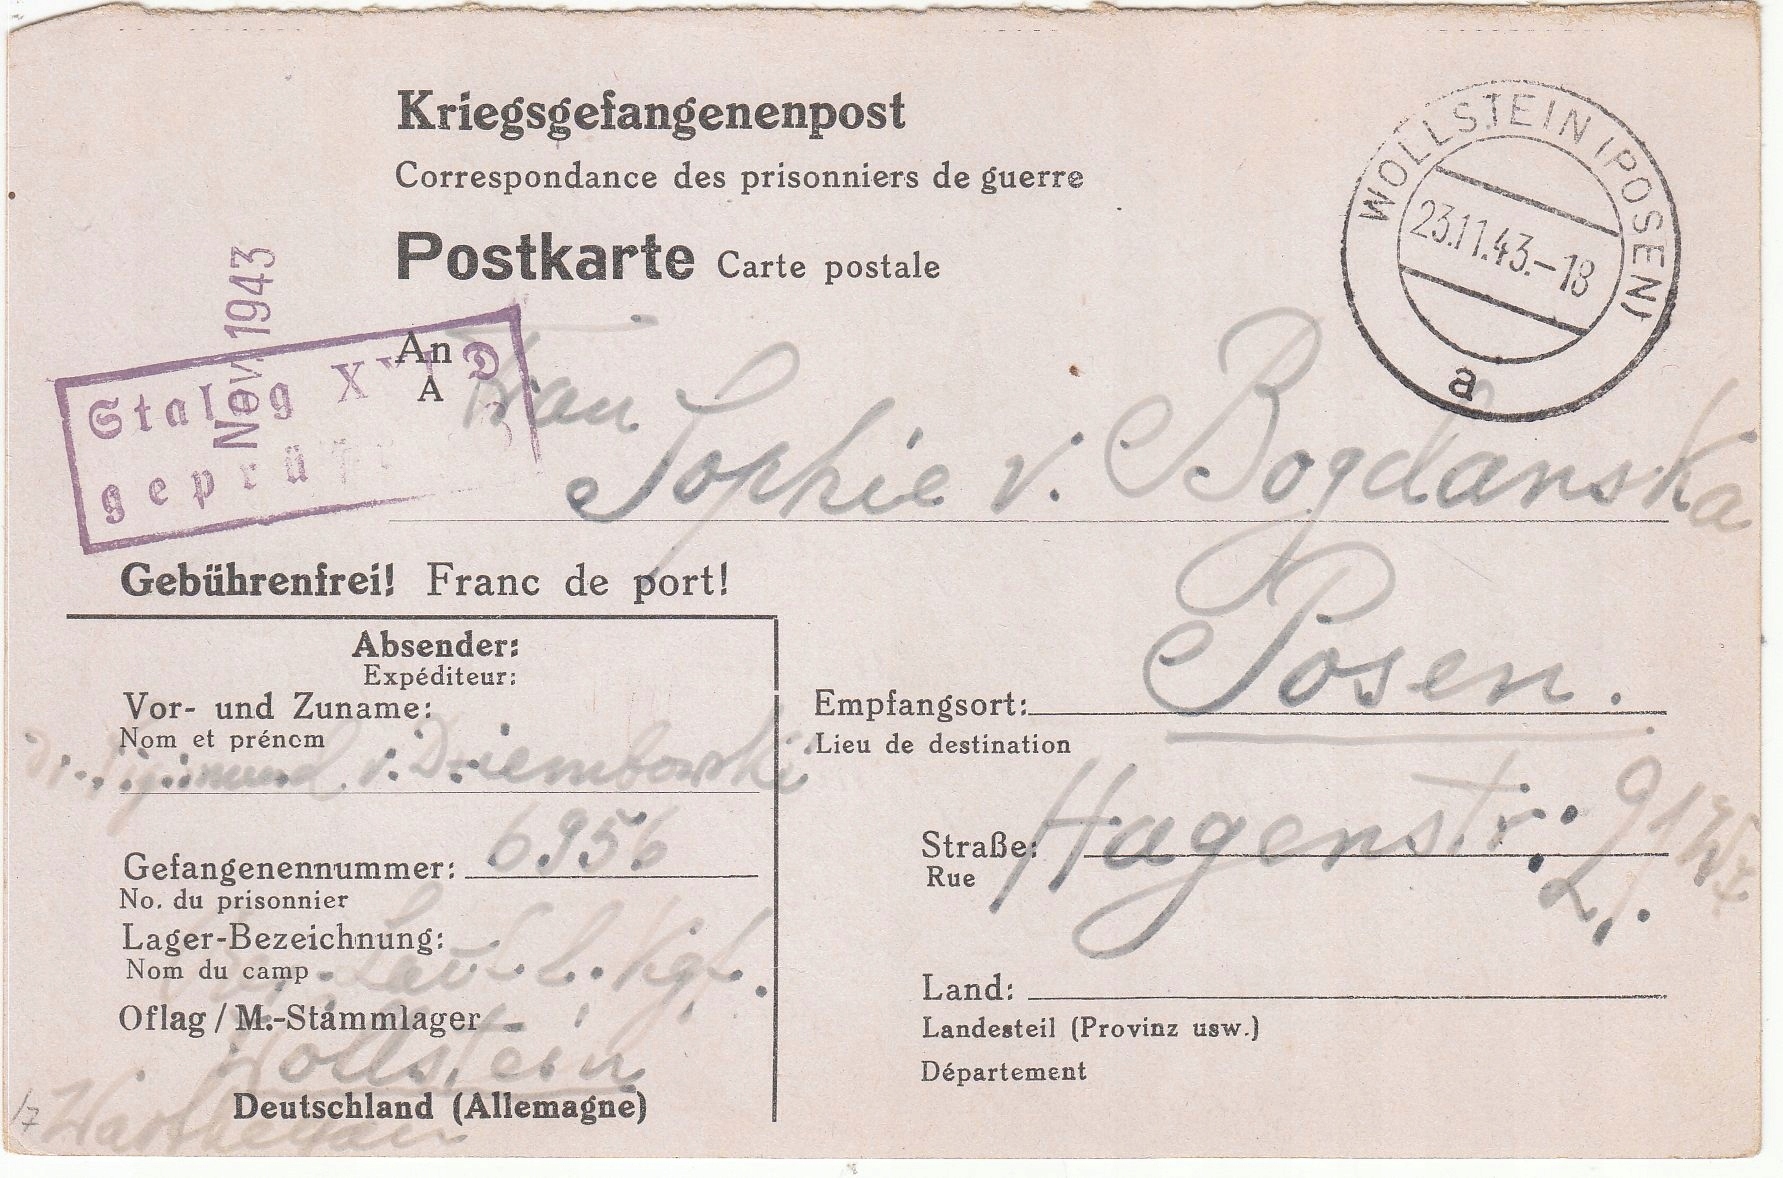 Kriegsgefangenenpost
Correspondance des prisonniers de guerre
Postkarte Carte postale
WOLLSTEIN (POSEN)
23.11.43.-18
a
Nov. 1943
Stalag XXI D
geprüft
An
A
Frau
Sophie v. Bogdanska
Gebührenfrei! Franc de port!
Absender:
Expéditeur:
Vor- und Zuname:
Nom et prénom
Dr. Sigismund v. Dziembowski
Gefangenennummer: 6956
No. du prisonnier
Lager-Bezeichnung:
Nom du camp
Kgf.
Oflag / M.-Stammlager
Wollstein
Deutschland (Allemagne)
Warthegau
17
Posen.
Empfangsort:
Lieu de destination
Straße: Hagenstr. 9
Rue
Land:
Landesteil (Provinz usw.)
Département